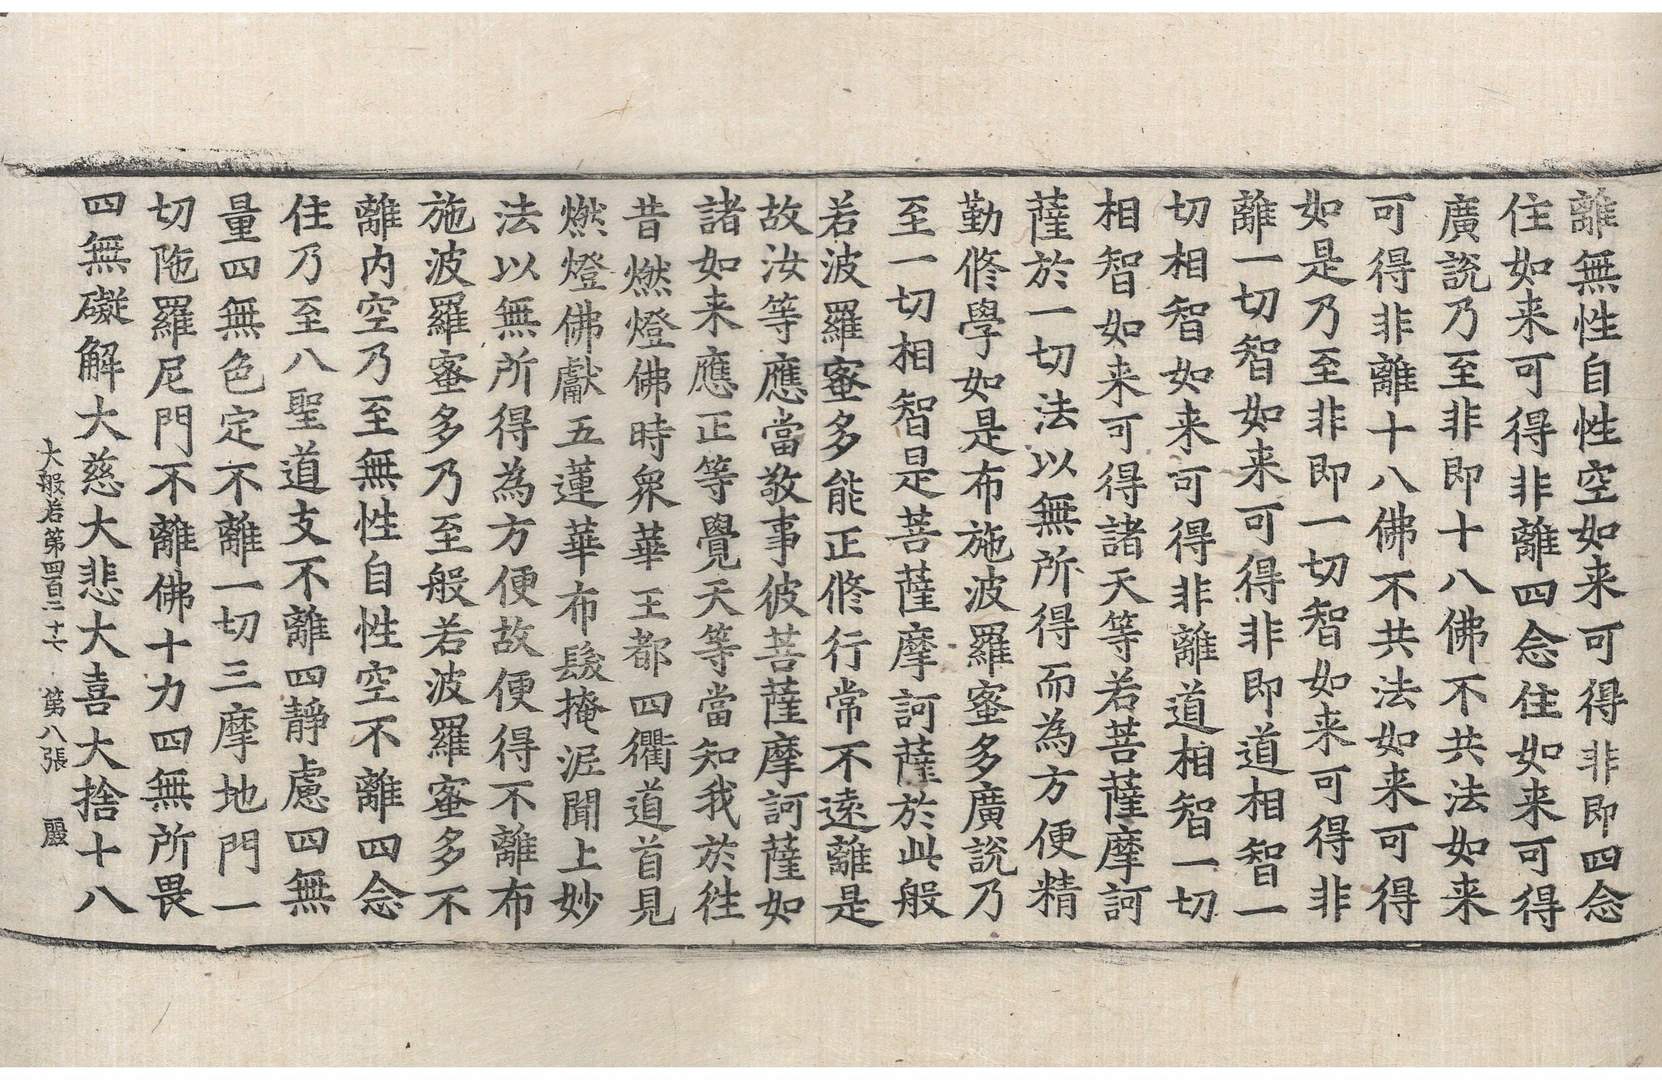 離無性自性空如来可得非即四念
住如来可得非離四念住如来可得
廣說乃至非即十八佛不共法如来
可得非離十八佛不共法如来可得
如是乃至非即一切智如来可得非
離一切智如来可得非即道相智一
切相智如来可得非離道相智一切
相智如来可得諸天等若菩薩摩訶
薩於一切法以無所得而為方便精
勤修學如是布施波羅蜜多廣說乃
至一切相智是菩薩摩訶薩於此般
若波羅蜜多能正修行常不遠離是
故汝等應當敬事彼菩薩摩訶薩如
諸如来應正等覺天等當知我於往
昔燃燈佛時衆華王都四衢道首見
燃燈佛獻五蓮華布髮掩泥聞上妙
法以無所得為方便故便得不離布
施波羅蜜多乃至般若波羅蜜多不
離内空乃至無性自性空不離四念
住乃至八聖道支不離四靜慮四無
量四無色定不離一切三摩地門一
切陁羅尼門不離佛十力四無所畏
四無礙解大慈大悲大喜大捨十八
大般若第四百二十七 第八張 麗